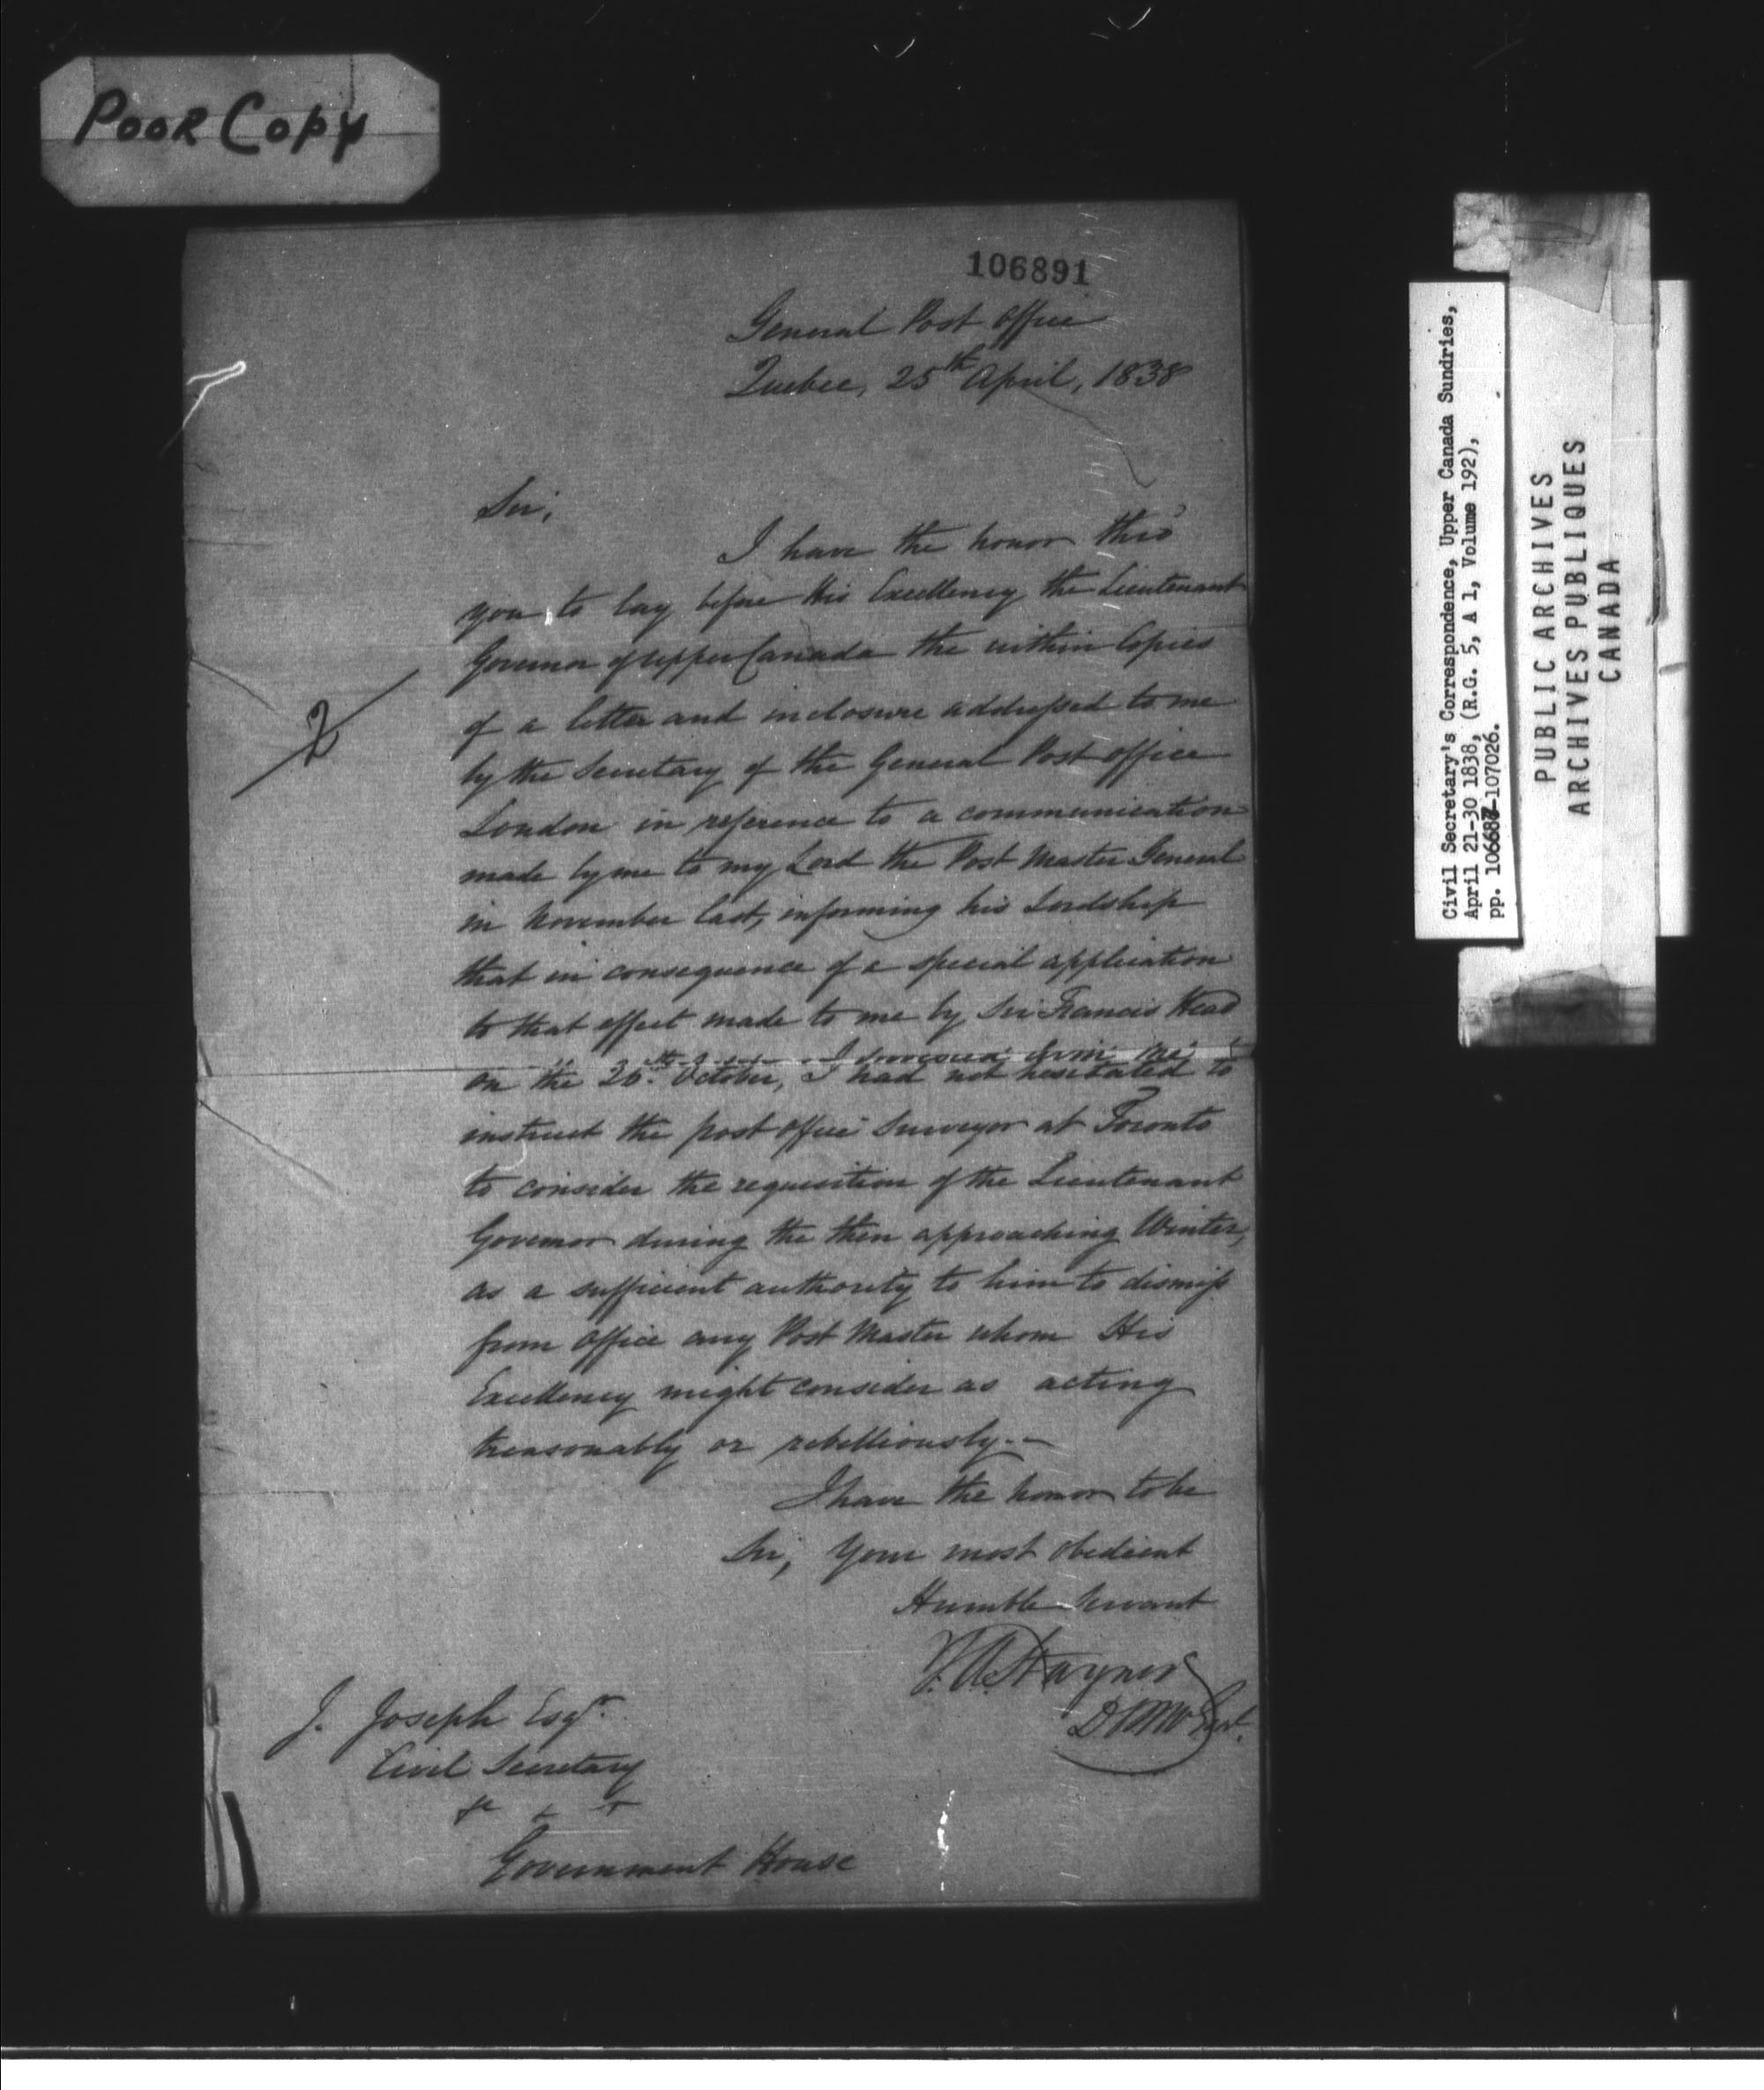 POOR COPY
106891
General Post Office
Quebec, 25th April, 1838
Sir,
I have the honor thro'
you to lay before His Excellency the Lieutenant
Governor of Upper Canada the within Copies
of a letter and inclosure addressed to me
by the Secretary of the General Post office
London in reference to a communication
made by me to my Lord the Post Master General
in November last, informing his Lordship
that in consequence of a special application
to that effect made to me by Sir Francis Head
on the 26th October, I had not hesitated to
instruct the post office Surveyor at Toronto
to consider the requisition of the Lieutenant
Governor during the then approaching Winter,
as a sufficient authority to him to dismiss
from office any Post Master whom His
Excellency might consider as acting
treasonably or rebelliously.—
I have the honor to be
Sir, Your most obedient
Humble Servant
T. A. Stayner
D P M Genl.
J. Joseph Esqr.
Civil Secretary
&c
Government House
Civil Secretary's Correspondence, Upper Canada Sundries,
April 21-30 1838, (R.G. 5, A 1, Volume 192),
pp. 106687-107026.
PUBLIC ARCHIVES
ARCHIVES PUBLIQUES
CANADA